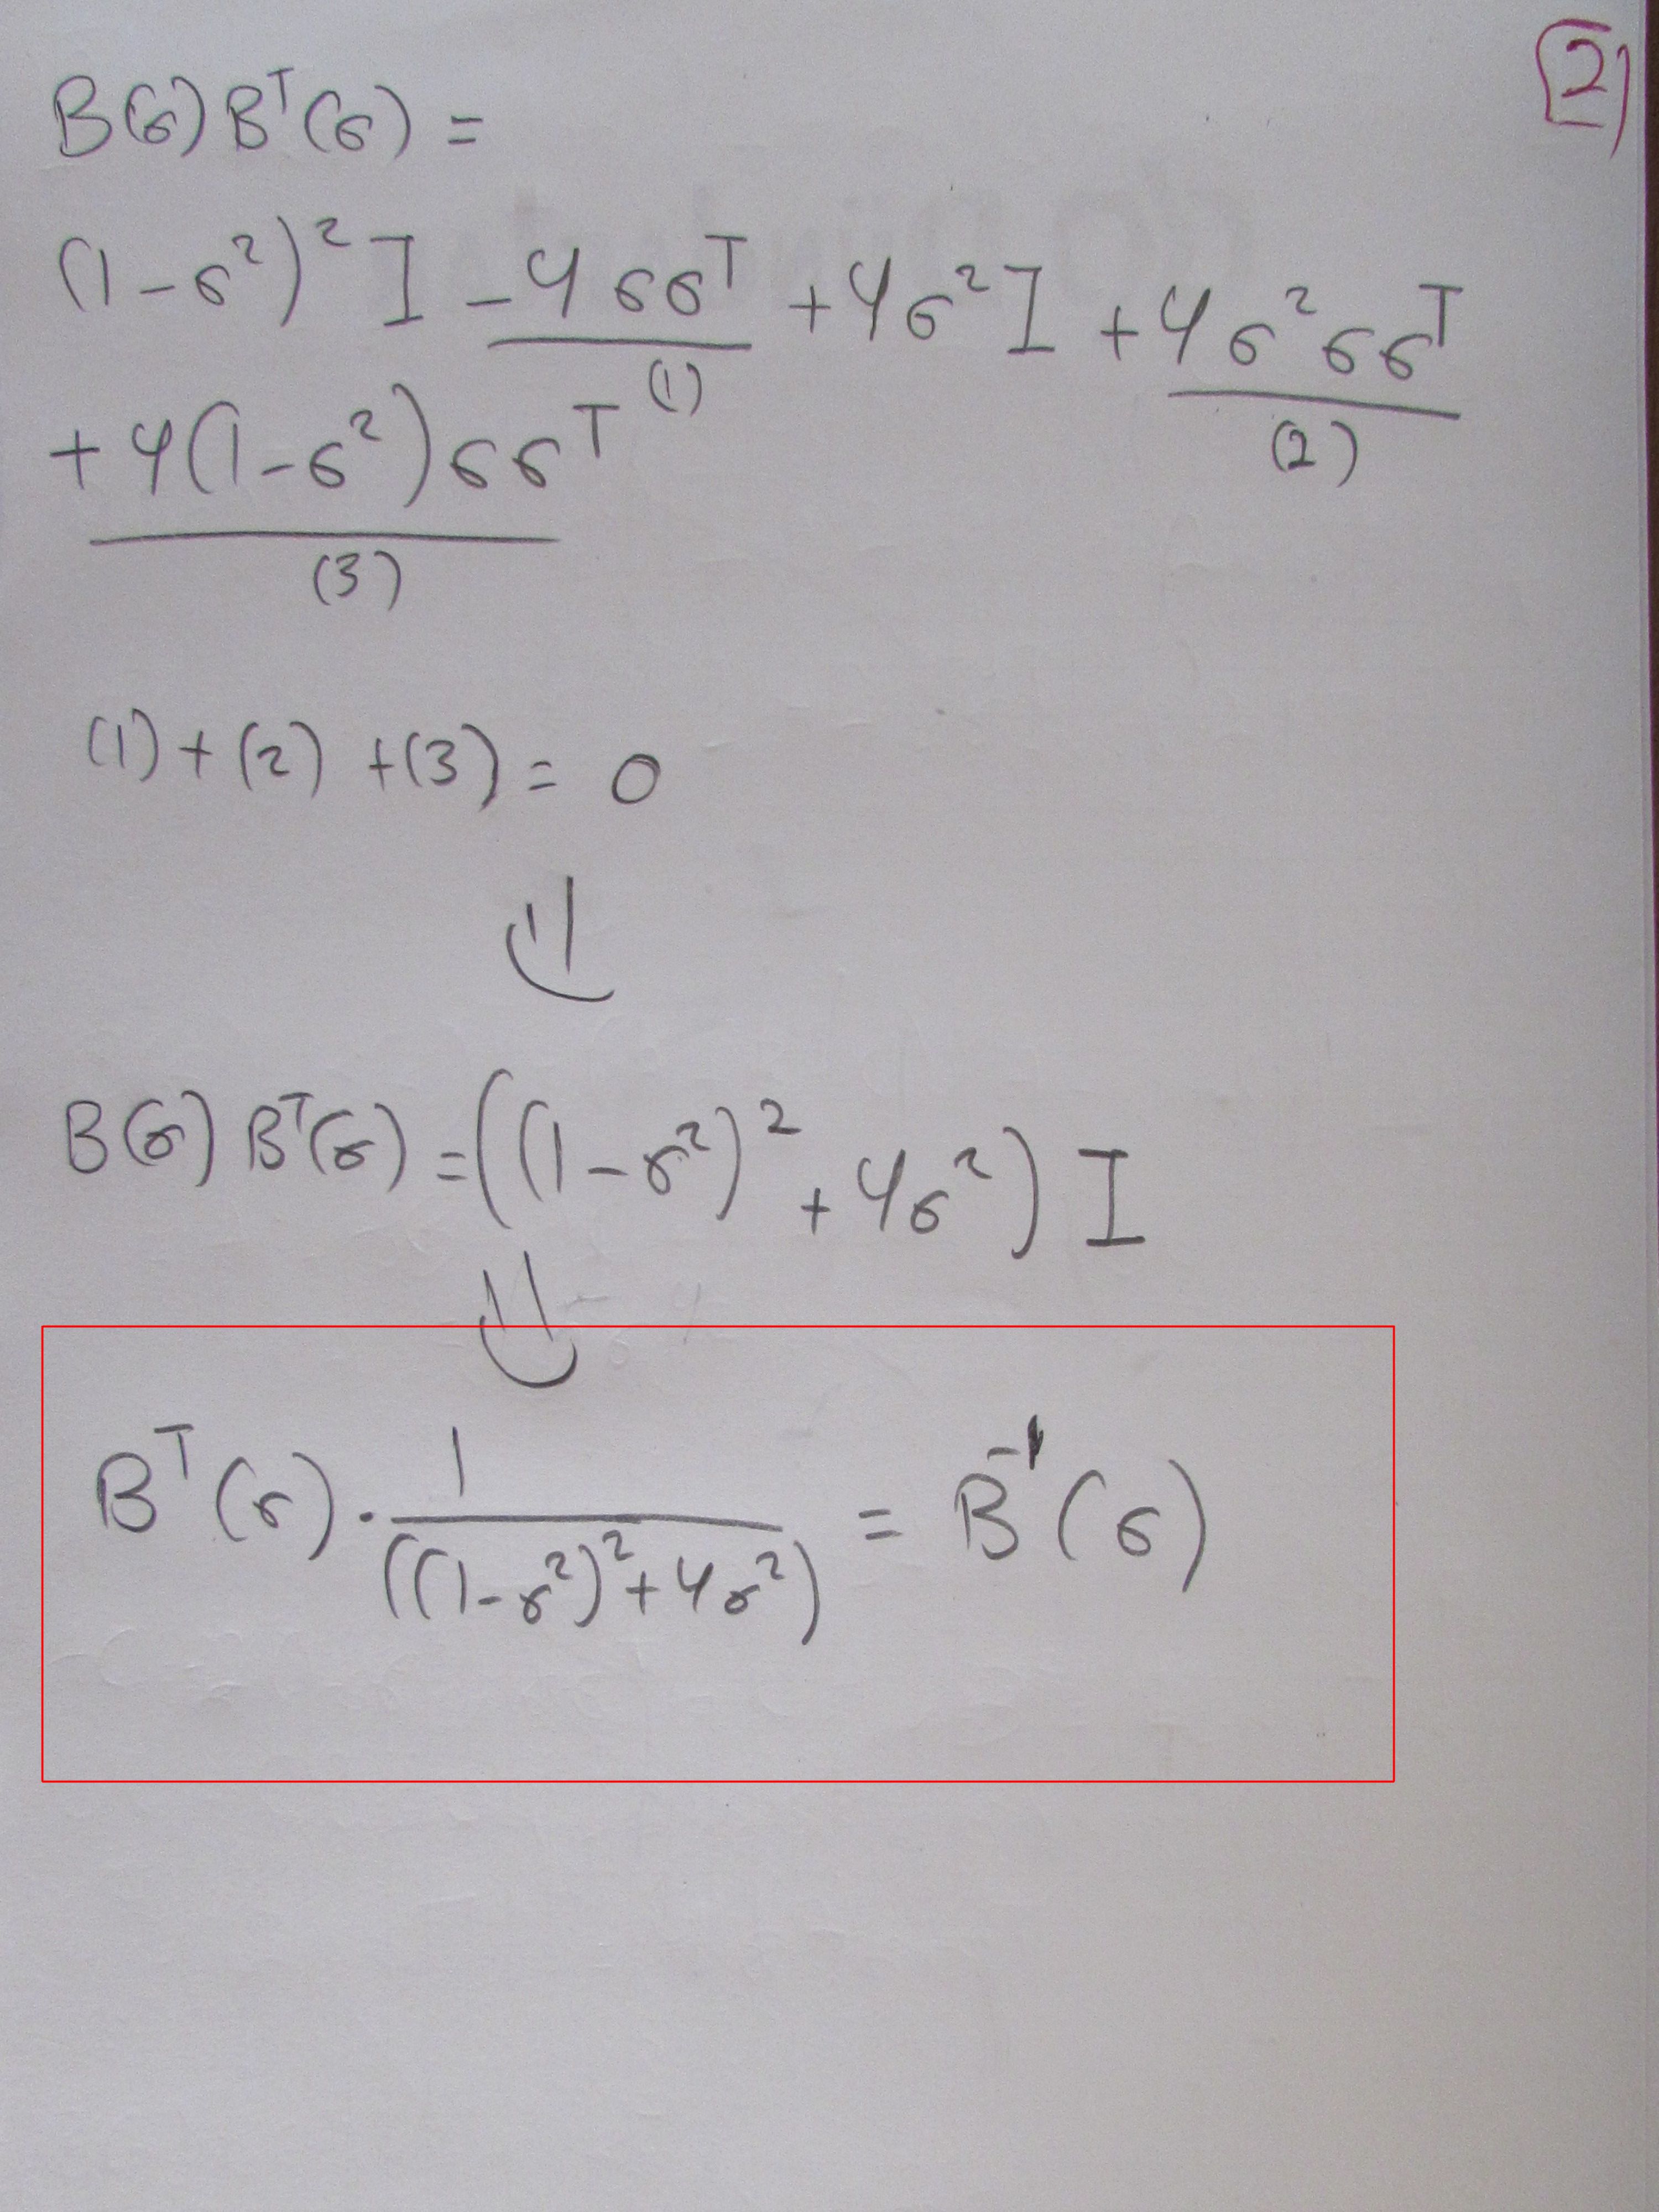 2
B(σ) Bᵀ(σ) =
(1-σ²)² I - 4 σσᵀ + 4σ² I + 4 σ² σσᵀ
(1) (2)
+ 4(1-σ²) σσᵀ
(3)
(1) + (2) + (3) = 0
⇓
B(σ) Bᵀ(σ) = ((1-σ²)² + 4σ²) I
⇓
Bᵀ(σ) · 1 / ((1-σ²)² + 4σ²) = B⁻¹(σ)